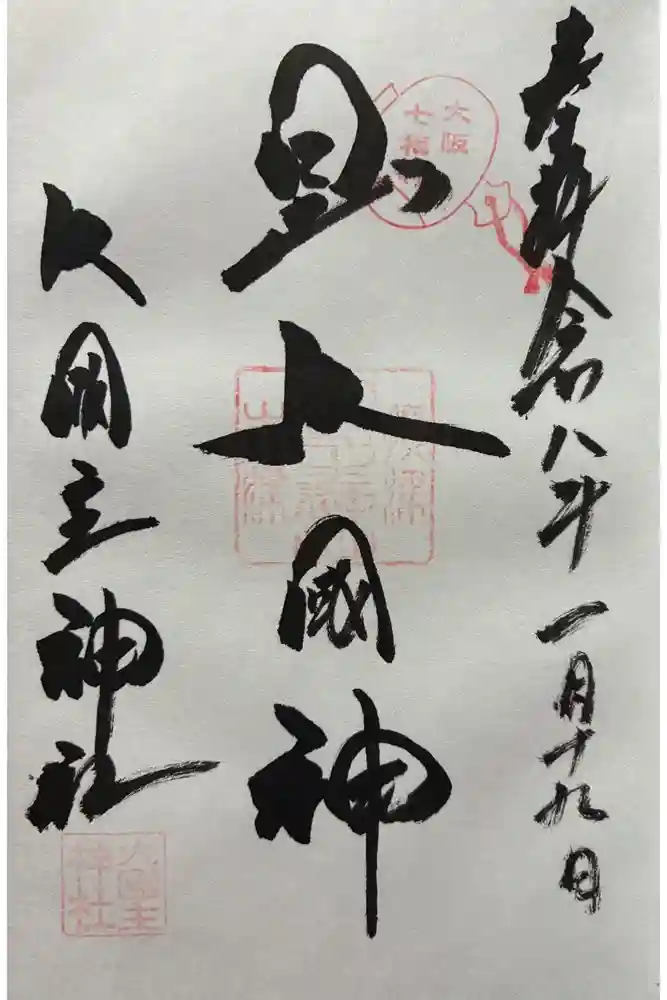 奉拝 令和八年一月十九日
大阪
七福
大國神
大国主神社
大国主
神社